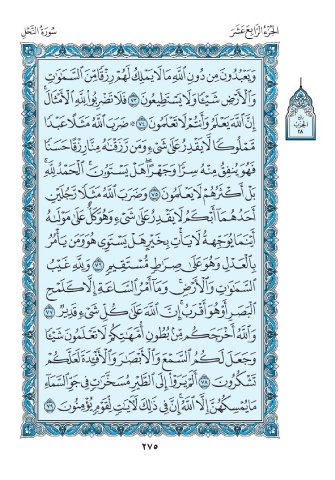 الجزء الرابع عشر
سورة النحل
وَيَعْبُدُونَ مِن دُونِ ٱللَّهِ مَا لَا يَمْلِكُ لَهُمْ رِزْقًا مِّنَ ٱلسَّمَٰوَٰتِ
وَٱلْأَرْضِ شَيْـًٔا وَلَا يَسْتَطِيعُونَ ٧٣ فَلَا تَضْرِبُوا۟ لِلَّهِ ٱلْأَمْثَالَ ۚ
إِنَّ ٱللَّهَ يَعْلَمُ وَأَنتُمْ لَا تَعْلَمُونَ ٧٤ ۞ ضَرَبَ ٱللَّهُ مَثَلًا عَبْدًا
مَّمْلُوكًا لَّا يَقْدِرُ عَلَىٰ شَىْءٍ وَمَن رَّزَقْنَٰهُ مِنَّا رِزْقًا حَسَنًا
فَهُوَ يُنفِقُ مِنْهُ سِرًّا وَجَهْرًا ۖ هَلْ يَسْتَوُۥنَ ۚ ٱلْحَمْدُ لِلَّهِ ۚ
بَلْ أَكْثَرُهُمْ لَا يَعْلَمُونَ ٧٥ وَضَرَبَ ٱللَّهُ مَثَلًا رَّجُلَيْنِ
أَحَدُهُمَآ أَبْكَمُ لَا يَقْدِرُ عَلَىٰ شَىْءٍ وَهُوَ كَلٌّ عَلَىٰ مَوْلَىٰهُ
أَيْنَمَا يُوَجِّههُّ لَا يَأْتِ بِخَيْرٍ ۖ هَلْ يَسْتَوِى هُوَ وَمَن يَأْمُرُ
بِٱلْعَدْلِ ۙ وَهُوَ عَلَىٰ صِرَٰطٍ مُّسْتَقِيمٍ ٧٦ وَلِلَّهِ غَيْبُ
ٱلسَّمَٰوَٰتِ وَٱلْأَرْضِ ۚ وَمَآ أَمْرُ ٱلسَّاعَةِ إِلَّا كَلَمْحِ
ٱلْبَصَرِ أَوْ هُوَ أَقْرَبُ ۚ إِنَّ ٱللَّهَ عَلَىٰ كُلِّ شَىْءٍ قَدِيرٌ ٧٧
وَٱللَّهُ أَخْرَجَكُم مِّنۢ بُطُونِ أُمَّهَٰتِكُمْ لَا تَعْلَمُونَ شَيْـًٔا
وَجَعَلَ لَكُمُ ٱلسَّمْعَ وَٱلْأَبْصَٰرَ وَٱلْأَفْـِٔدَةَ ۙ لَعَلَّكُمْ
تَشْكُرُونَ ٧٨ أَلَمْ يَرَوْا۟ إِلَى ٱلطَّيْرِ مُسَخَّرَٰتٍ فِى جَوِّ ٱلسَّمَآءِ
مَا يُمْسِكُهُنَّ إِلَّا ٱللَّهُ ۗ إِنَّ فِى ذَٰلِكَ لَءَايَٰتٍ لِّقَوْمٍ يُؤْمِنُونَ ٧٩
الحزب
٢٨
٢٧٥